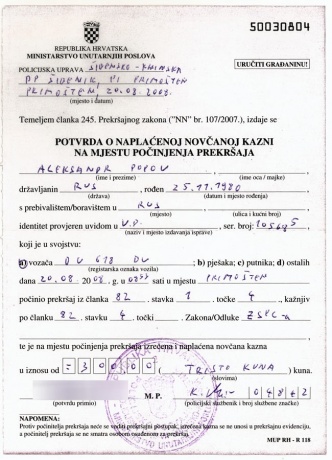 50030804
REPUBLIKA HRVATSKA
MINISTARSTVO UNUTARNJIH POSLOVA
URUČITI GRAĐANINU!
POLICIJSKA UPRAVA ŠIBENSKO-KNINSKA
PP ŠIBENIK, PI PRIMOŠTEN
PRIMOŠTEN, 20.08.2008.
(mjesto i datum)
Temeljem članka 245. Prekršajnog zakona ("NN" br. 107/2007.), izdaje se
POTVRDA O NAPLAĆENOJ NOVČANOJ KAZNI
NA MJESTU POČINJENJA PREKRŠAJA
ALEKSANDR POPOV
(ime i prezime) (ime oca / majke)
državljanin RUS, rođen 25.11.1980
(datum i mjesto rođenja)
s prebivalištem/boravištem u RUS
(mjesto) (ulica i kućni broj)
identitet provjeren uvidom u V.P. ser. broj:
(naziv i mjesto izdavanja isprave)
koji je u svojstvu:
a) vozača DU 618 DU; b) pješaka; c) putnika; d) ostalih
(registarska oznaka vozila)
dana 20.08 2008, g. u 0855 sati u mjestu PRIMOŠTEN
počinio prekršaj iz članka 82. stavka 1 točke 4, kažnjiv
po članku 82. stavku 4 točki . Zakona/Odluke ZSPC-a
te je na mjestu počinjenja prekršaja izrečena i naplaćena novčana kazna
u iznosu od =300,00 TRISTO KUNA) kuna.
(slovima)
M.P.
(potvrdu primio) (policijski službenik i broj službene značke)
NAPOMENA:
Protiv počinitelja prekršaja neće se voditi prekršajni postupak, izrečena kazna se ne unosi u prekršajnu evidenciju,
a počinitelj prekršaja se ne smatra osobom osuđenom za prekršaj.
MUP RH - R 118